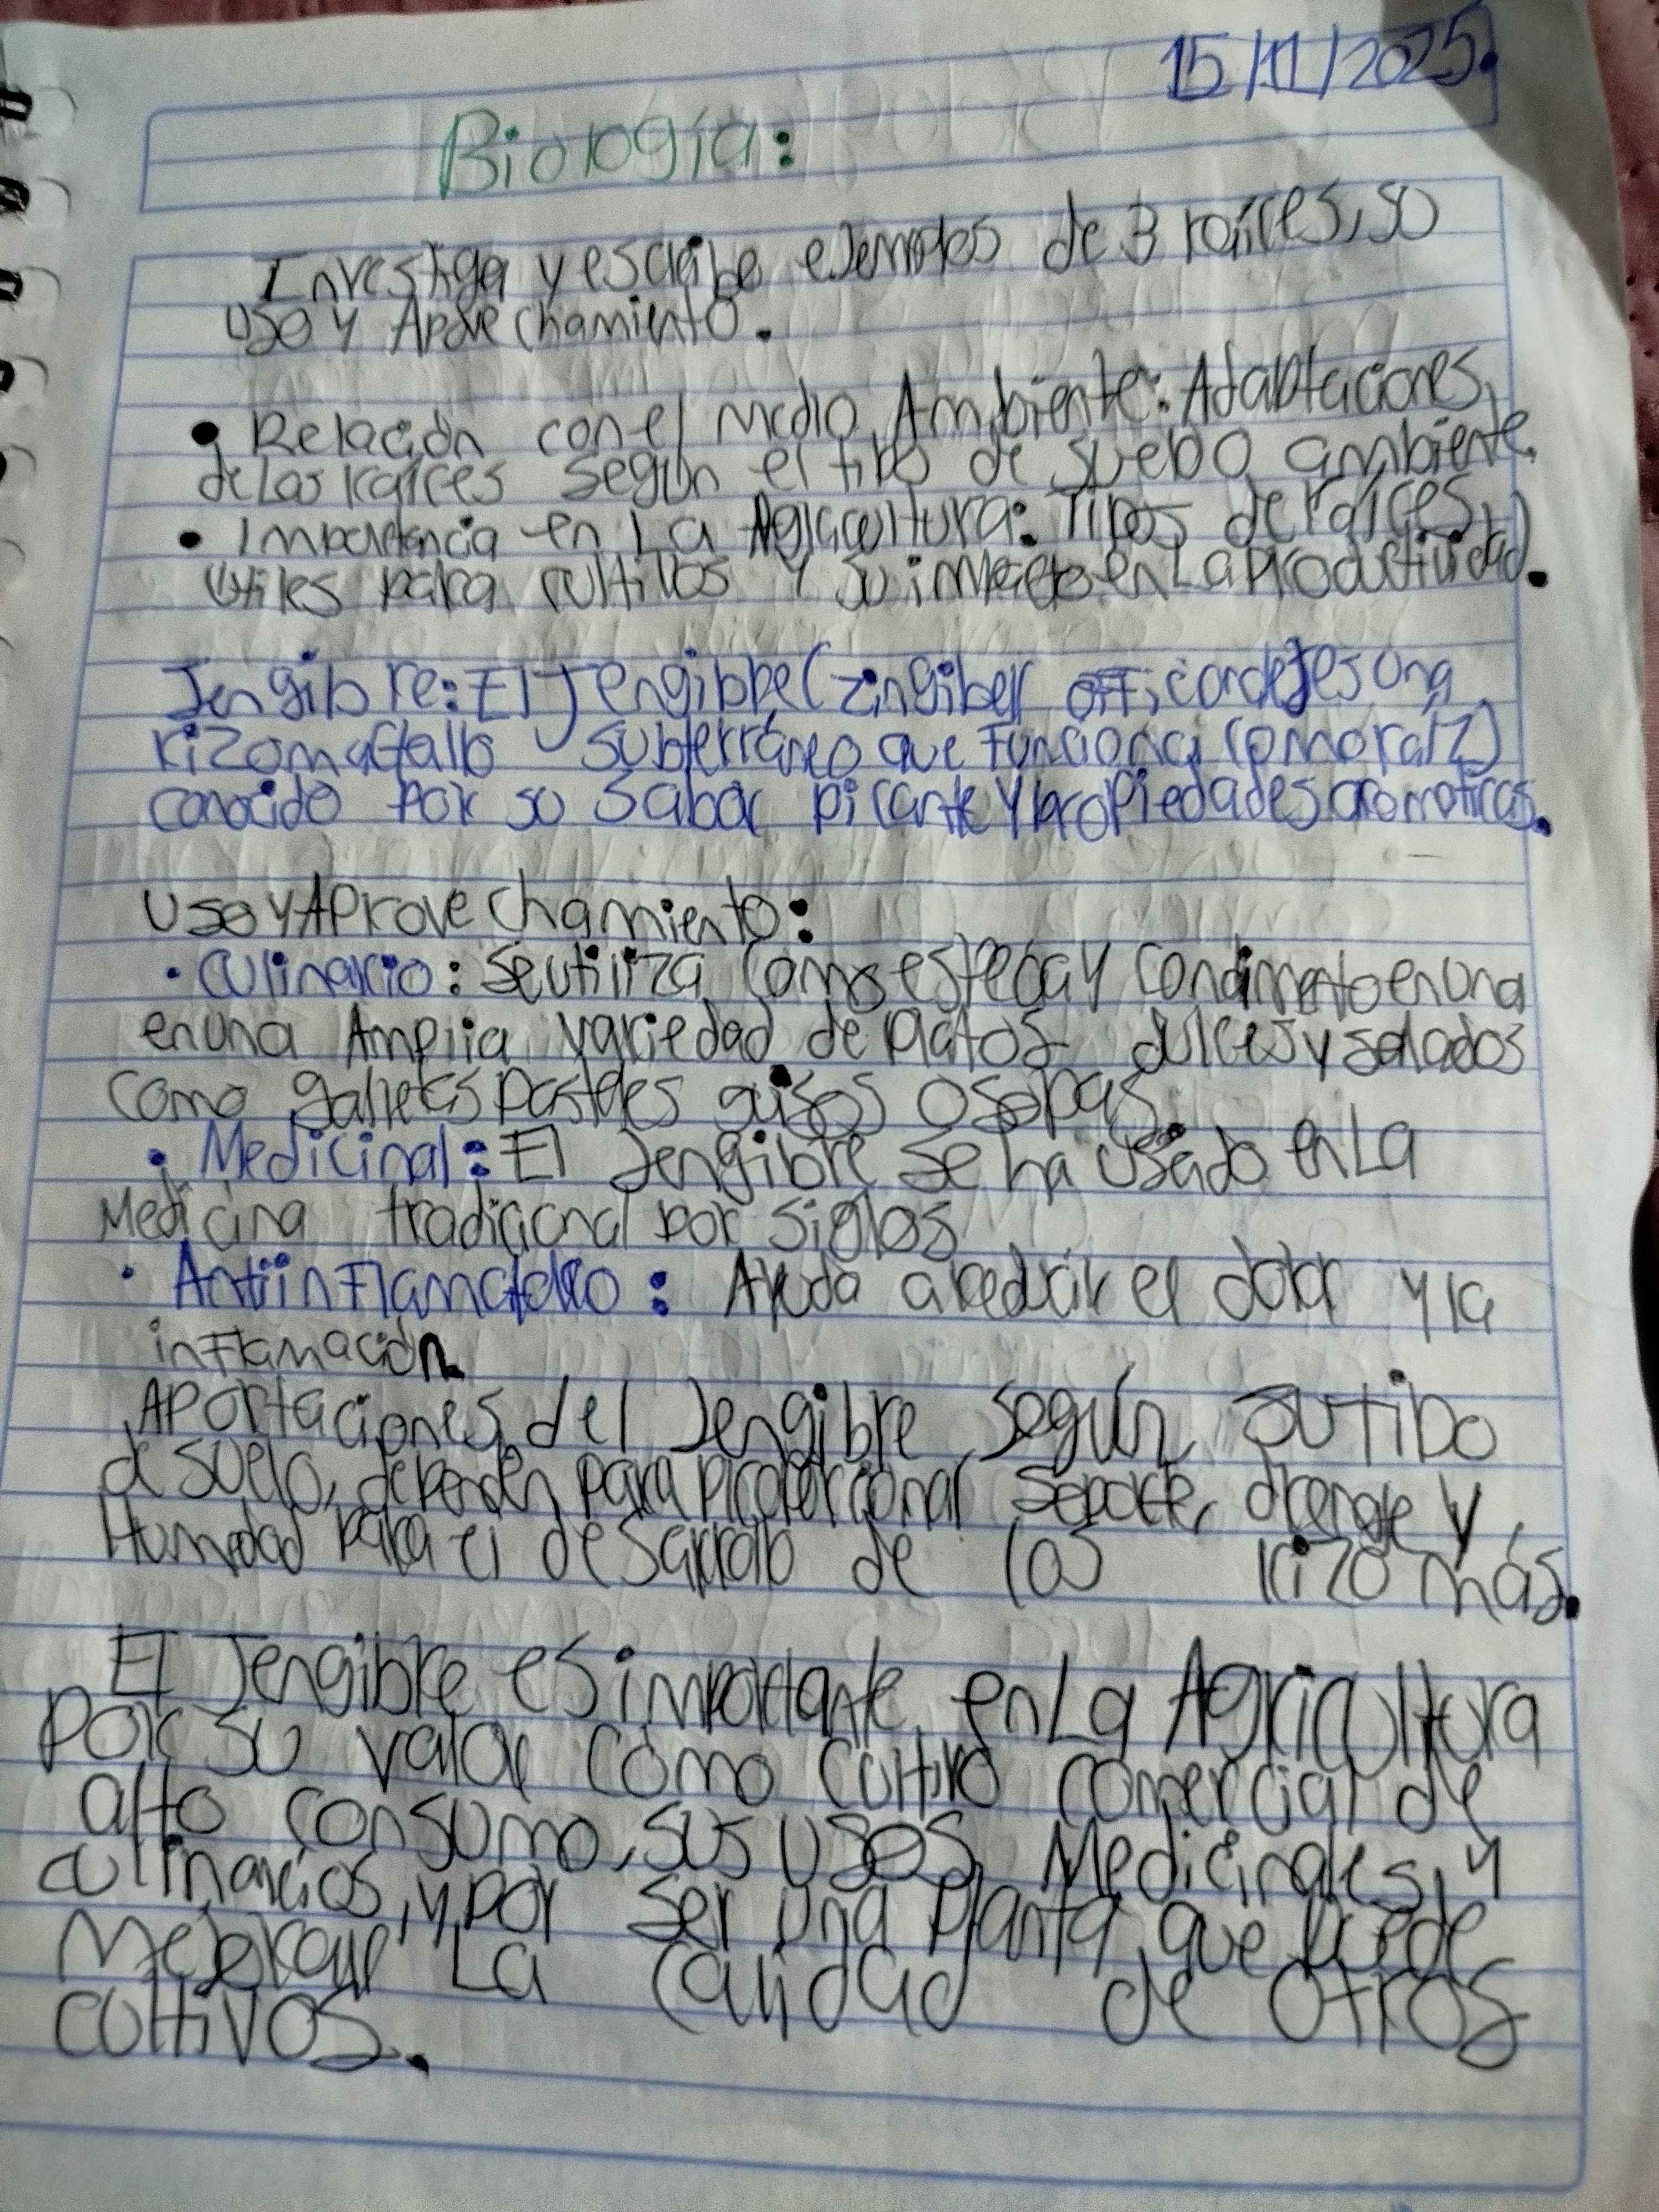 15/11/2025.
Biología:
Investiga y escribe ejemplos de 3 raíces, so
uso y Aprovechamiento.
• Relación con el medio Ambiente: Adaptaciones
de las raíces según el tipo de suelo o ambiente.
• Importancia en La Agricultura: Tipos de raíces
útiles para cultivos y su impacto en La Productividad.
Jengibre: El Jengibre (zingiber es una
rizoma (tallo subterráneo que Funciona como raíz)
conocido por su sabor picante y propiedades aromaticas.
Uso y Aprovechamiento:
• Culinario: Se utiliza como especia y condimento en una
en una Amplia variedad de platos dulces y salados
como galletas pasteles guisos o sopas.
• Medicinal: El Jengibre se ha usado en La
Medicina tradicional por siglos
• Antiinflamatorio: Ayuda a reducir el dolor y la
inflamación
Aportaciones del Jengibre según su tipo
de suelo, dependen para proporcionar soporte, drenaje y
Humedad para el desarrollo de los rizomás.
El Jengibre es importante en La Agricultura
por su valor como cultivo comercial de
alto consumo, sus usos Medicinales, y
culinarios, y por ser una planta que puede
mejorar La calidad de otros
cultivos.